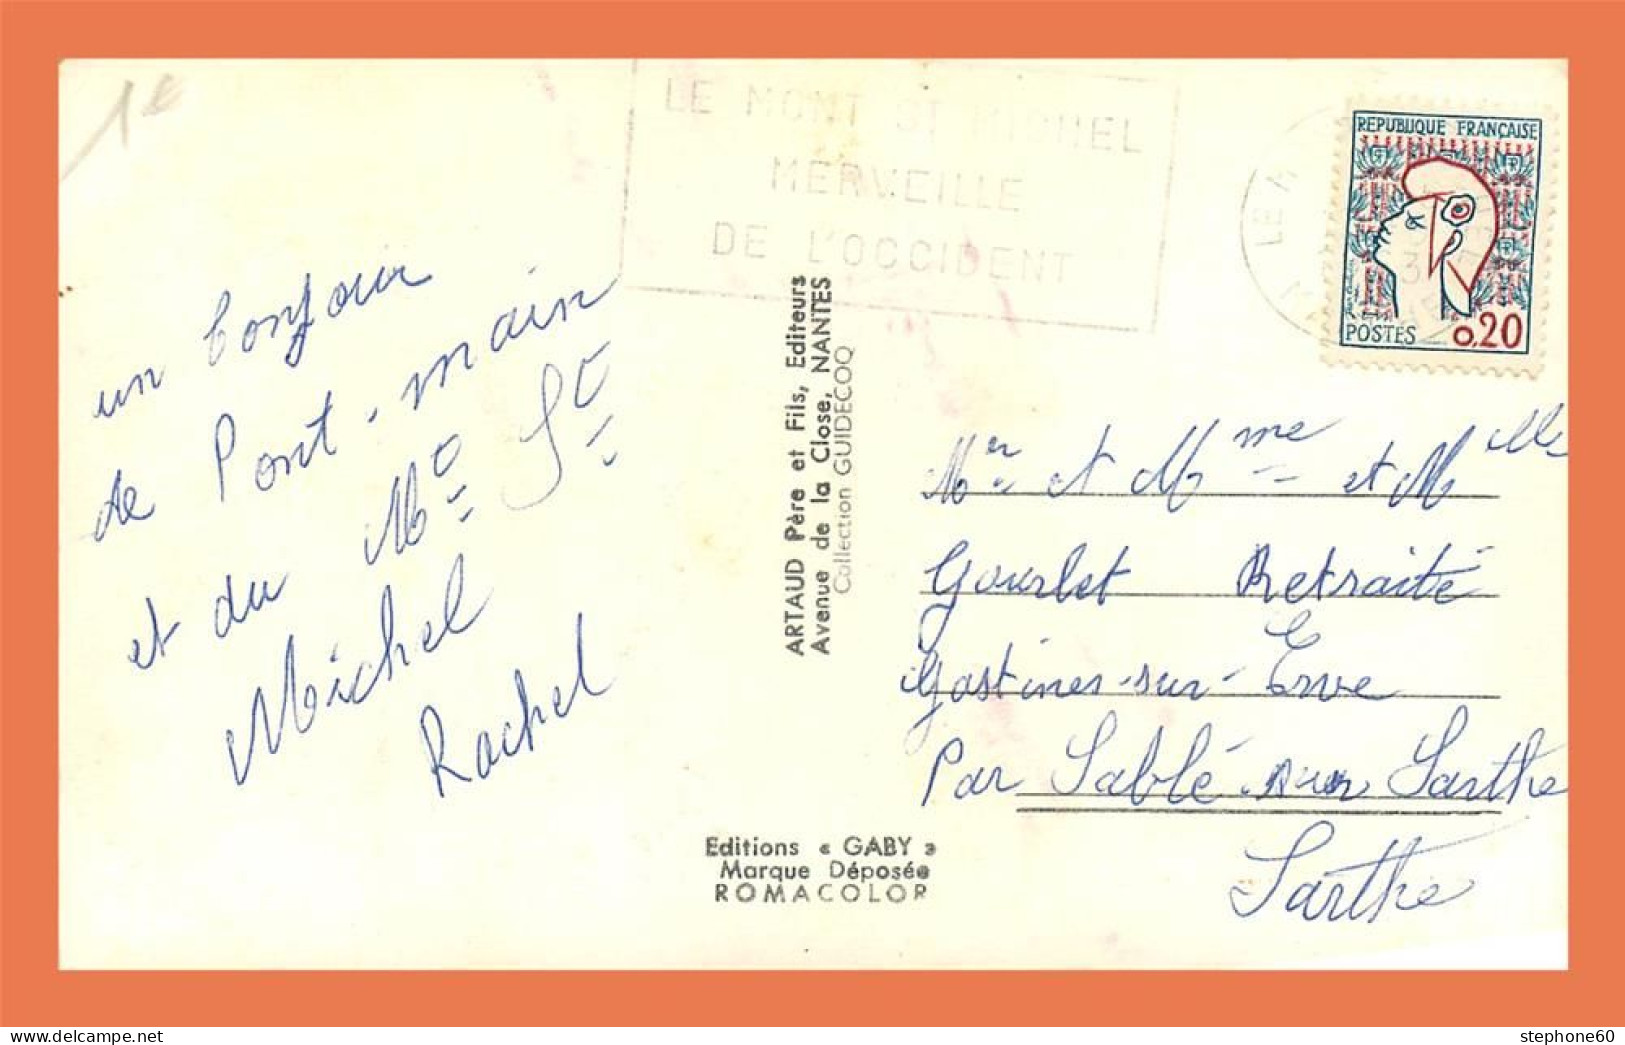 1€
LE MONT ST MICHEL
MERVEILLE
DE L'OCCIDENT
REPUBLIQUE FRANÇAISE
POSTES 0,20
un bonjour
de Pont-main
et du Mo So
Michel
Rachel
ARTAUD Père et Fils, Editeurs
Avenue de la Close, NANTES
Collection GUIDECOQ
Mer et Mme et Mlle
Gourlet Retraité
Gastines-sur-Erve
Par Sablé-sur Sarthe
Sarthe
Editions « GABY »
Marque Déposée
ROMACOLOR
stephone60